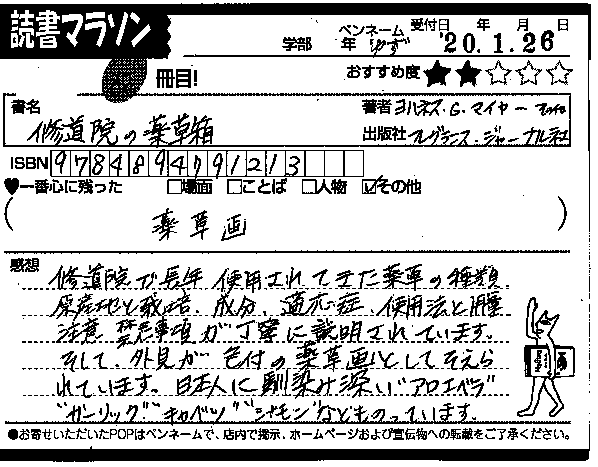 読書マラソン
学部 年 ペンネーム ゆず 受付日 年 月 日
'20.1.26
冊目! おすすめ度 ★★☆☆☆
書名 修道院の薬草箱
著者 ヨハネス・G・マイヤー
出版社 フレグランス・ジャーナル社
ISBN 9784894791213
♥一番心に残った □場面 □ことば □人物 ☑その他
( 薬草画 )
感想
修道院で長年使用されてきた薬草の種類
原産地と栽培、成分、適応症、使用法と用量
注意 禁忌事項が丁寧に説明されています。
そして、外見が色付の薬草画としてそえら
れています。日本人に馴染み深い"アロエベラ"
"ガーリック""キャベツ""シナモン"などものっています。
●お寄せいただいたPOPはペンネームで、店内で掲示、ホームページおよび宣伝物への転載をご了承ください。